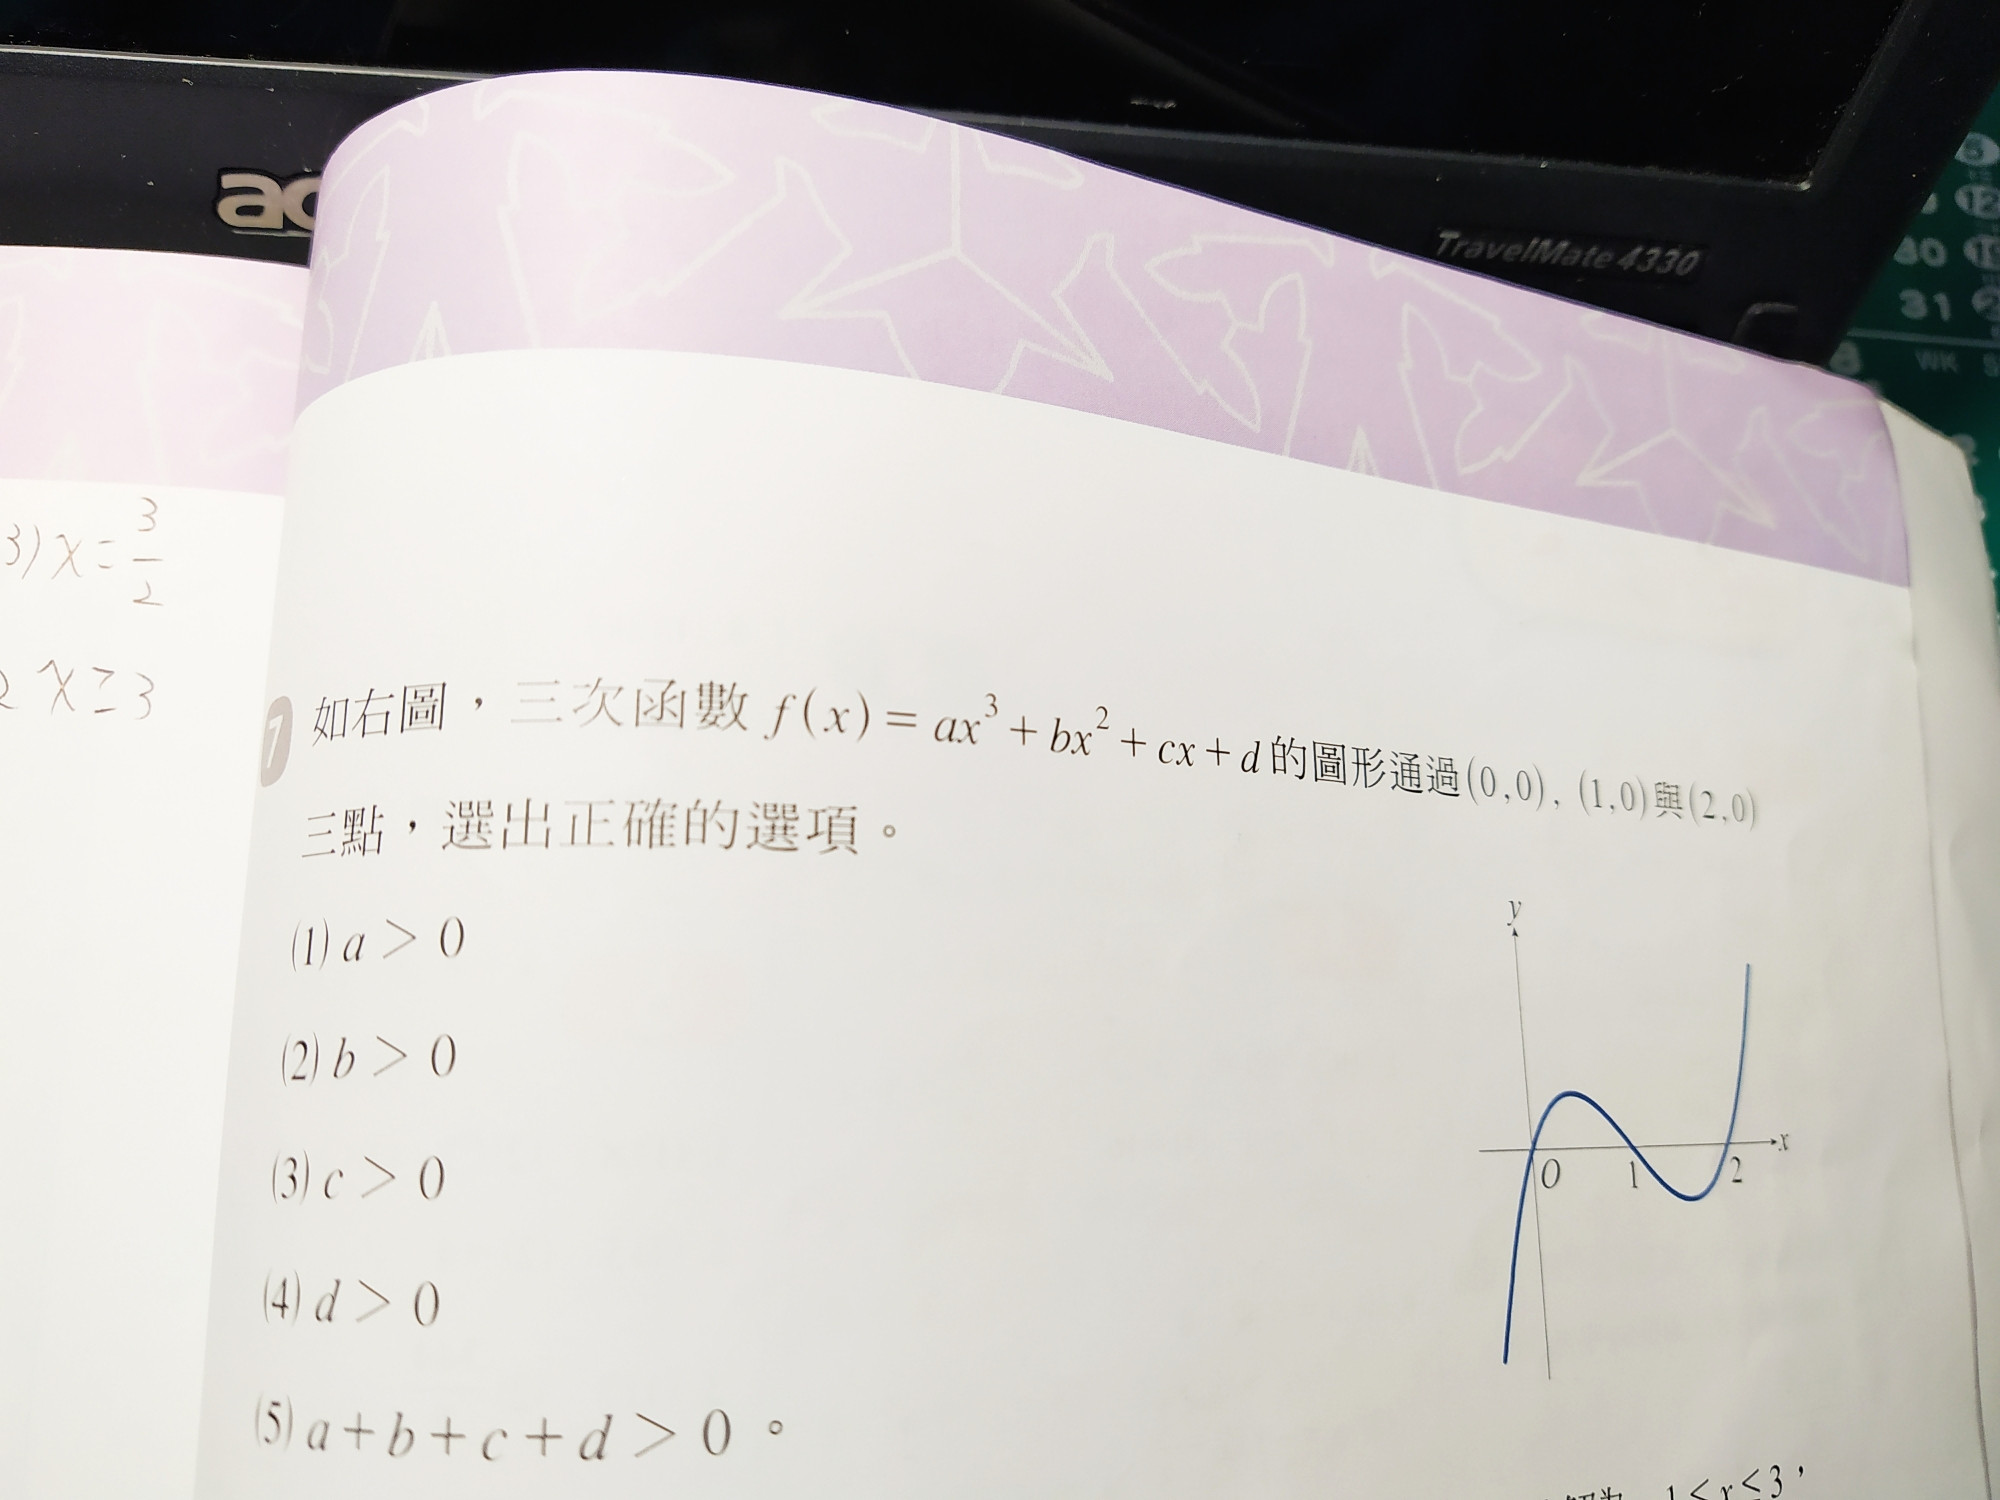 TravelMate 4330
30
31
WK
3) x = 3/2
x ≥ 3
7 如右圖，三次函數 f(x) = ax³ + bx² + cx + d 的圖形通過(0,0), (1,0)與(2,0)
三點，選出正確的選項。
(1) a > 0
(2) b > 0
(3) c > 0
(4) d > 0
(5) a + b + c + d > 0。
y
x
O
1
2
1 ≤ x ≤ 3，